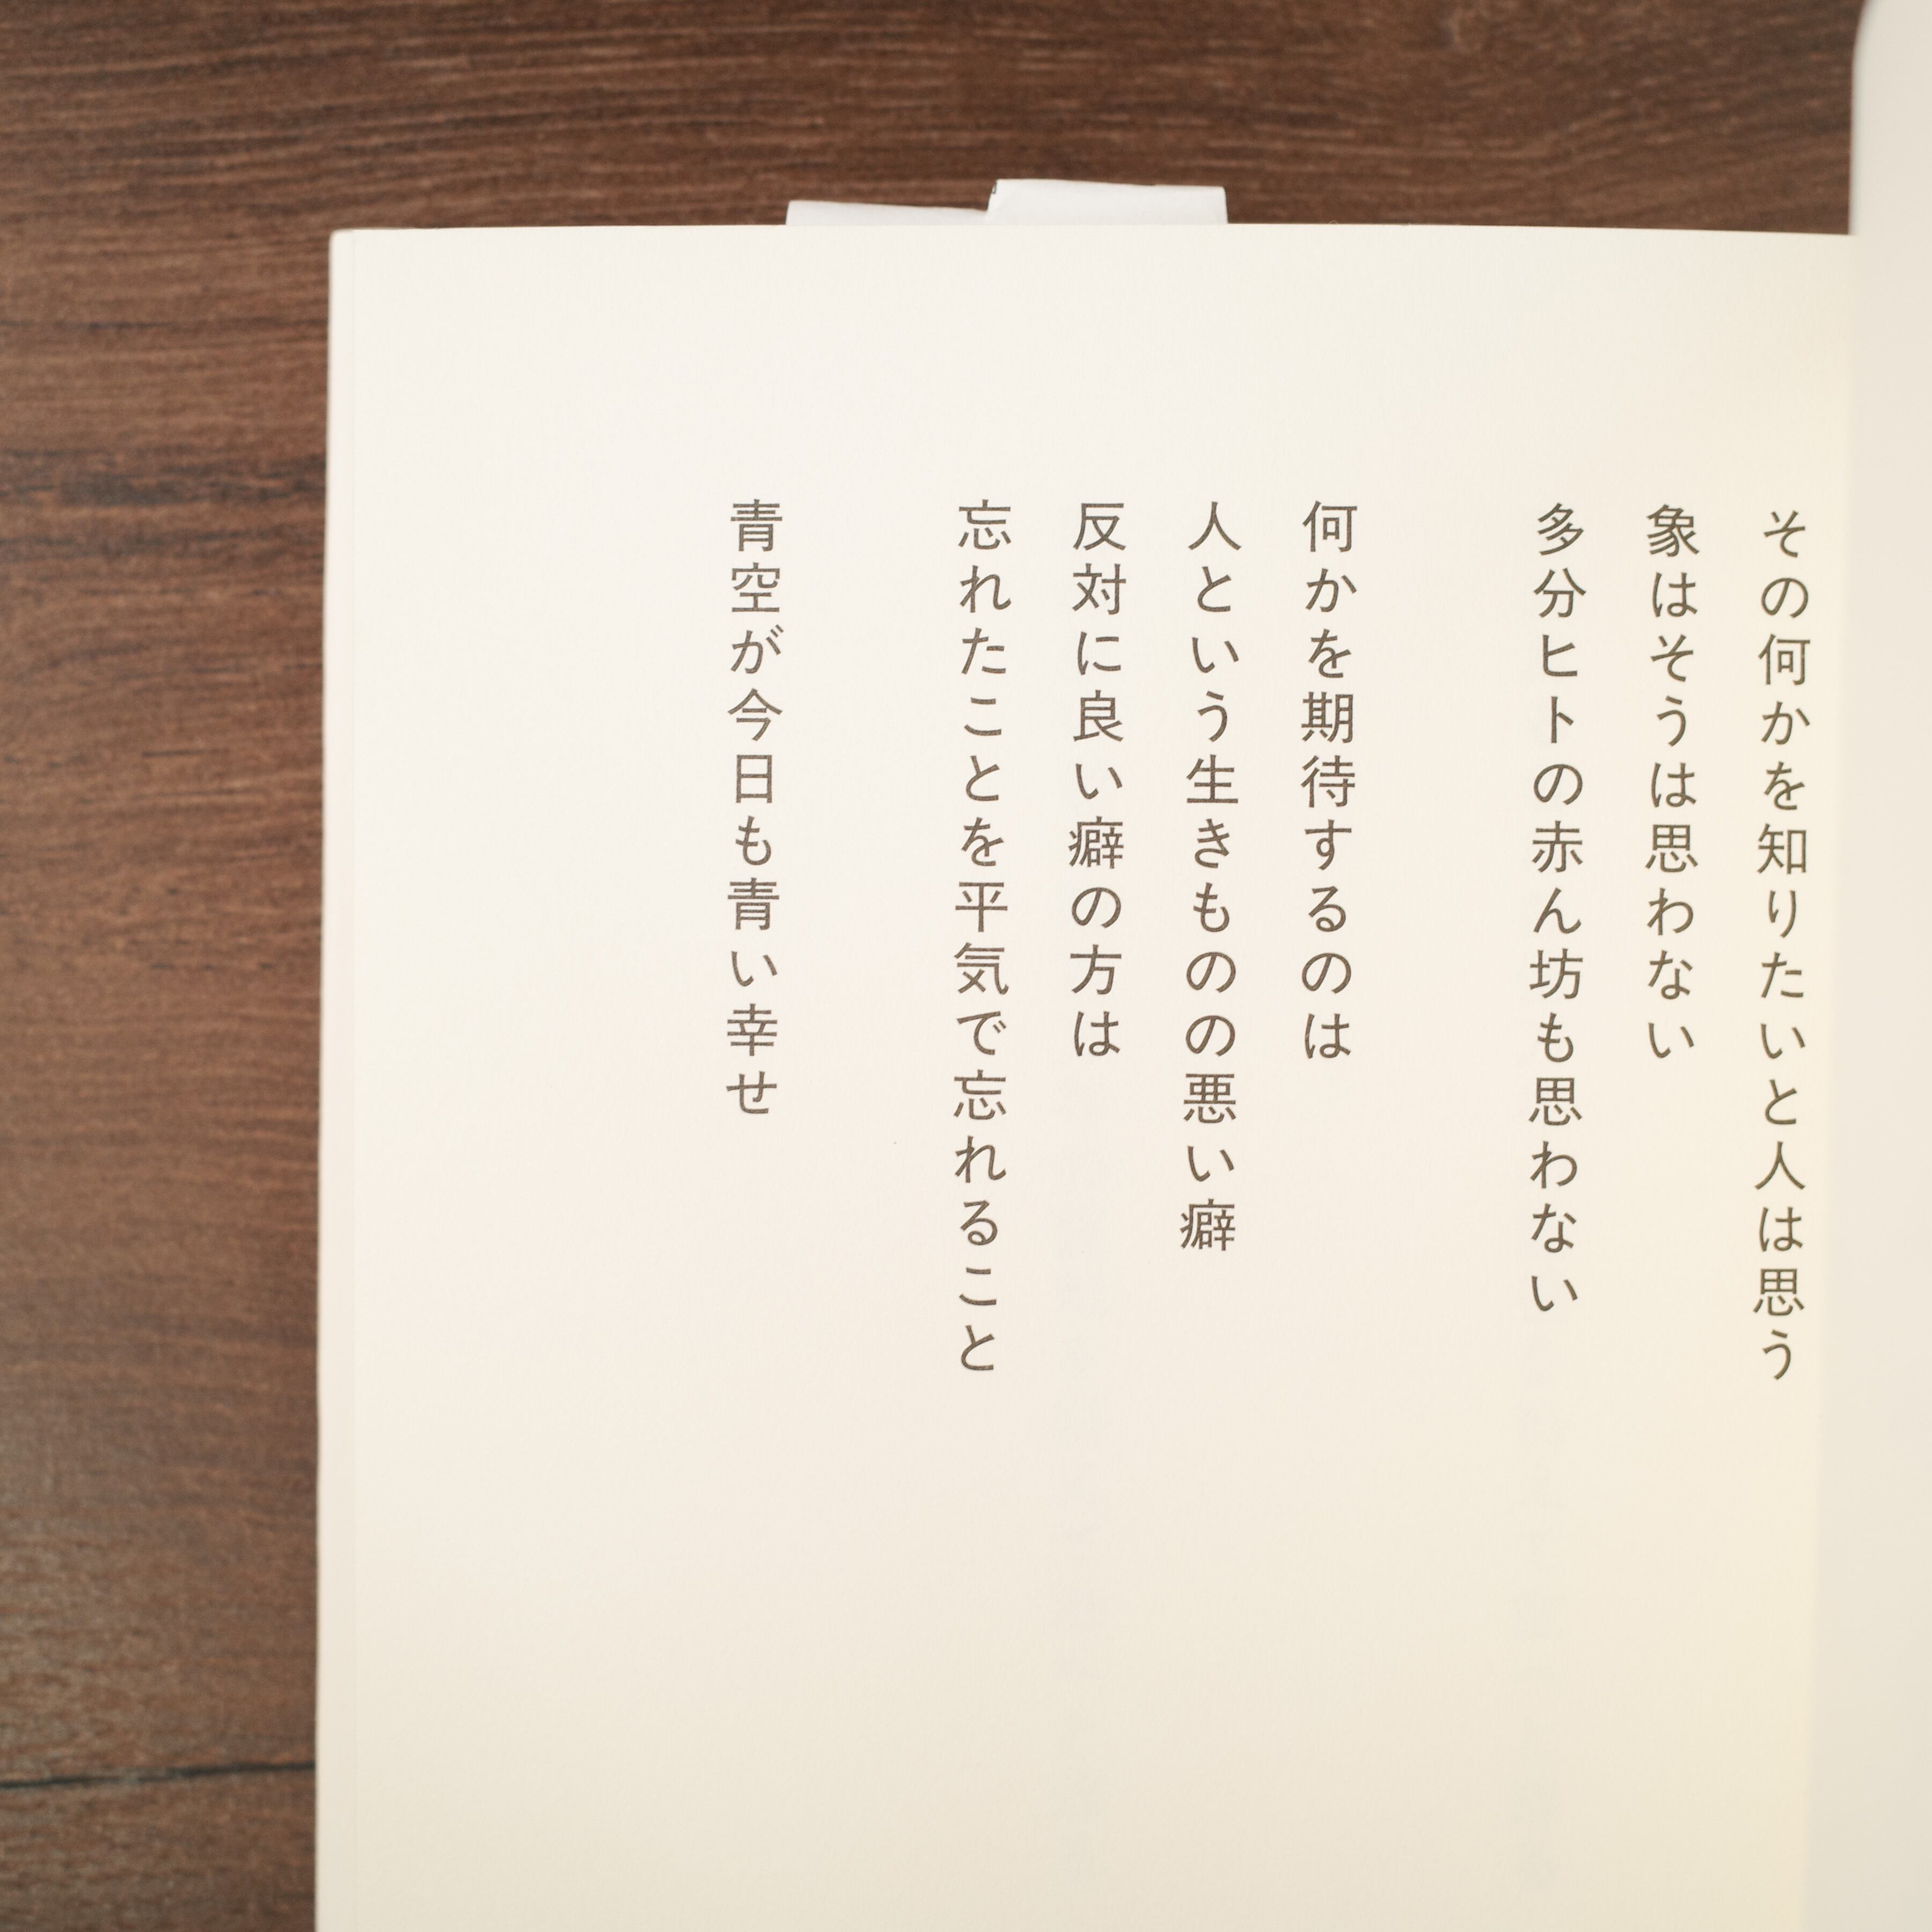 その何かを知りたいと人は思う
象はそうは思わない
多分ヒトの赤ん坊も思わない
何かを期待するのは
人という生きものの悪い癖
反対に良い癖の方は
忘れたことを平気で忘れること
青空が今日も青い幸せ